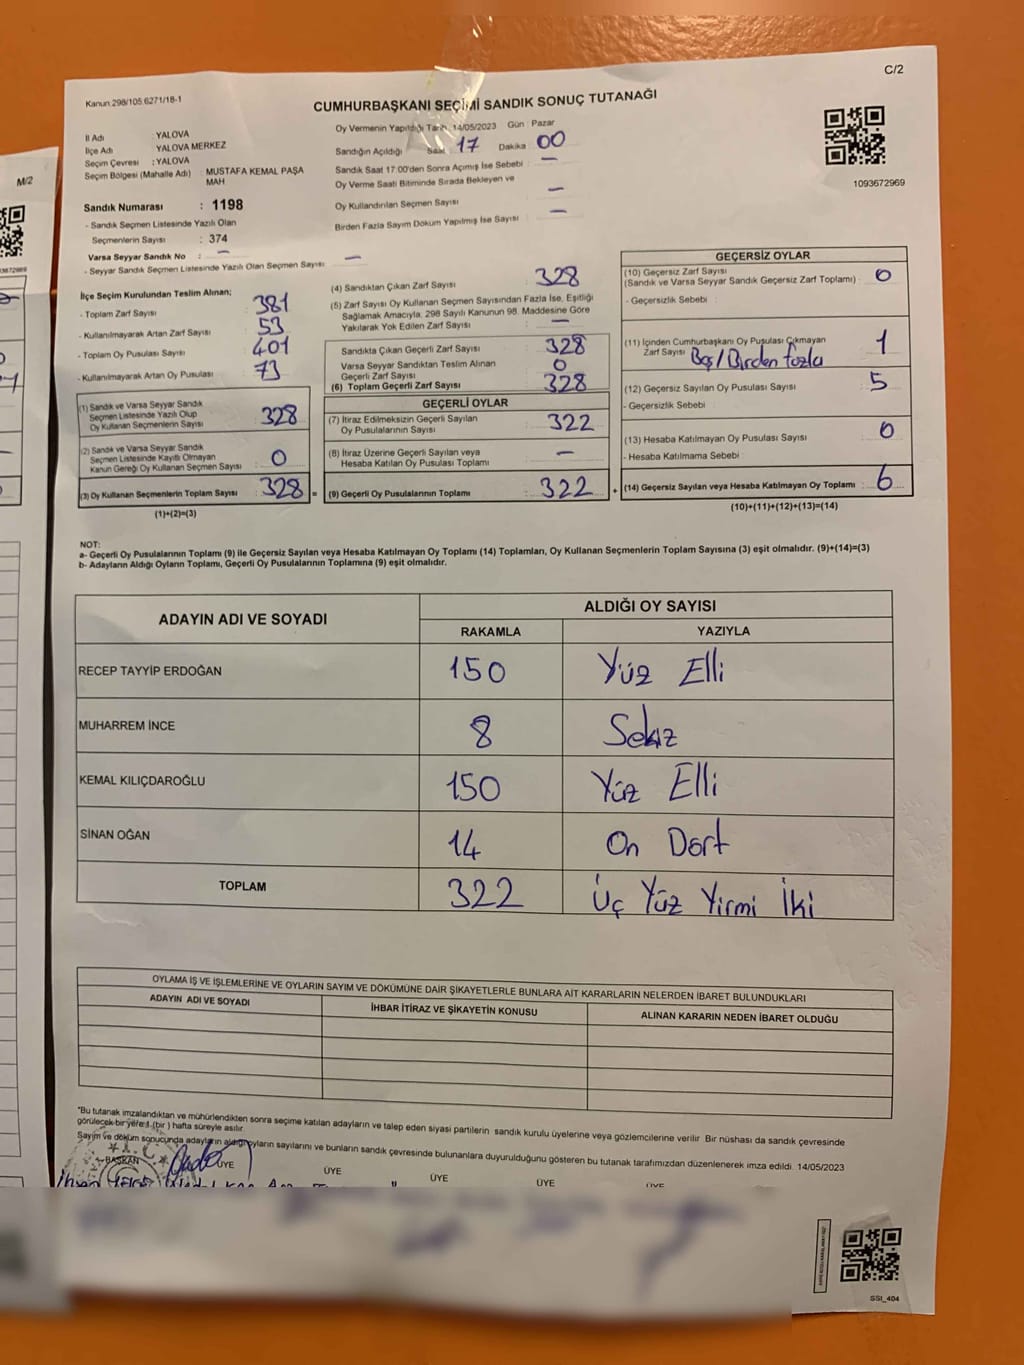 C/2
Kanun.298/105.6271/18-1
CUMHURBAŞKANI SEÇİMİ SANDIK SONUÇ TUTANAĞI
İl Adı : YALOVA
İlçe Adı YALOVA MERKEZ
Seçim Çevresi : YALOVA
Seçim Bölgesi (Mahalle Adı) : MUSTAFA KEMAL PAŞA
MAH
Oy Vermenin Yapıldığı Tarih 14/05/2023 Gün : Pazar
Sandığın Açıldığı Saat 17 Dakika 00
Sandık Saat 17:00'den Sonra Açımış İse Sebebi : –
Oy Verme Saati Bitiminde Sırada Bekleyen ve
Oy Kullandırılan Seçmen Sayısı –
Birden Fazla Sayım Döküm Yapılmış İse Sayısı –
1093672969
M/2
Sandık Numarası : 1198
- Sandık Seçmen Listesinde Yazılı Olan
Seçmenlerin Sayısı : 374
Varsa Seyyar Sandık No : –
- Seyyar Sandık Seçmen Listesinde Yazılı Olan Seçmen Sayısı : –
İlçe Seçim Kurulundan Teslim Alınan;
- Toplam Zarf Sayısı 381
- Kullanılmayarak Artan Zarf Sayısı 53
- Toplam Oy Pusulası Sayısı 401
- Kullanılmayarak Artan Oy Pusulası 73
(1) Sandık ve Varsa Seyyar Sandık
Seçmen Listesinde Yazılı Olup
Oy Kullanan Seçmenlerin Sayısı 328
(2) Sandık ve Varsa Seyyar Sandık
Seçmen Listesinde Kayıtlı Olmayan
Kanun Gereği Oy Kullanan Seçmen Sayısı 0
(3) Oy Kullanan Seçmenlerin Toplam Sayısı 328 =
(1)+(2)=(3)
(4) Sandıktan Çıkan Zarf Sayısı 328
(5) Zarf Sayısı Oy Kullanan Seçmen Sayısından Fazla İse, Eşitliği
Sağlamak Amacıyla, 298 Sayılı Kanunun 98. Maddesine Göre
Yakılarak Yok Edilen Zarf Sayısı –
Sandıkta Çıkan Geçerli Zarf Sayısı 328
Varsa Seyyar Sandıktan Teslim Alınan
Geçerli Zarf Sayısı 0
(6) Toplam Geçerli Zarf Sayısı 328
GEÇERLİ OYLAR
(7) İtiraz Edilmeksizin Geçerli Sayılan
Oy Pusulalarının Sayısı 322
(8) İtiraz Üzerine Geçerli Sayılan veya
Hesaba Katılan Oy Pusulası Toplamı –
(9) Geçerli Oy Pusulalarının Toplamı 322 +
GEÇERSİZ OYLAR
(10) Geçersiz Zarf Sayısı
(Sandık ve Varsa Seyyar Sandık Geçersiz Zarf Toplamı) : 0
- Geçersizlik Sebebi :
(11) İçinden Cumhurbaşkanı Oy Pusulası Çıkmayan
Zarf Sayısı Boş/Birden fazla 1
(12) Geçersiz Sayılan Oy Pusulası Sayısı 5
- Geçersizlik Sebebi
(13) Hesaba Katılmayan Oy Pusulası Sayısı 0
- Hesaba Katılmama Sebebi
(14) Geçersiz Sayılan veya Hesaba Katılmayan Oy Toplamı : 6
(10)+(11)+(12)+(13)=(14)
NOT:
a- Geçerli Oy Pusulalarının Toplamı (9) ile Geçersiz Sayılan veya Hesaba Katılmayan Oy Toplamı (14) Toplamları, Oy Kullanan Seçmenlerin Toplam Sayısına (3) eşit olmalıdır. (9)+(14)=(3)
b- Adayların Aldığı Oyların Toplamı, Geçerli Oy Pusulalarının Toplamına (9) eşit olmalıdır.
ADAYIN ADI VE SOYADI ALDIĞI OY SAYISI
RAKAMLA YAZIYLA
RECEP TAYYİP ERDOĞAN 150 Yüz Elli
MUHARREM İNCE 8 Sekiz
KEMAL KILIÇDAROĞLU 150 Yüz Elli
SİNAN OĞAN 14 On Dört
TOPLAM 322 Üç Yüz Yirmi İki
OYLAMA İŞ VE İŞLEMLERİNE VE OYLARIN SAYIM VE DÖKÜMÜNE DAİR ŞİKAYETLERLE BUNLARA AİT KARARLARIN NELERDEN İBARET BULUNDUKLARI
ADAYIN ADI VE SOYADI İHBAR İTİRAZ VE ŞİKAYETİN KONUSU ALINAN KARARIN NEDEN İBARET OLDUĞU
*Bu tutanak imzalandıktan ve mühürlendikten sonra seçime katılan adayların ve talep eden siyasi partilerin sandık kurulu üyelerine veya gözlemcilerine verilir Bir nüshası da sandık çevresinde
görülecek bir yere 1 (bir ) hafta süreyle asılır.
Sayım ve döküm sonucunda adayların aldığı oyların sayılarını ve bunların sandık çevresinde bulunanlara duyurulduğunu gösteren bu tutanak tarafımızdan düzenlenerek imza edildi. 14/05/2023
BAŞKAN ÜYE ÜYE ÜYE ÜYE ÜYE
SSI_404